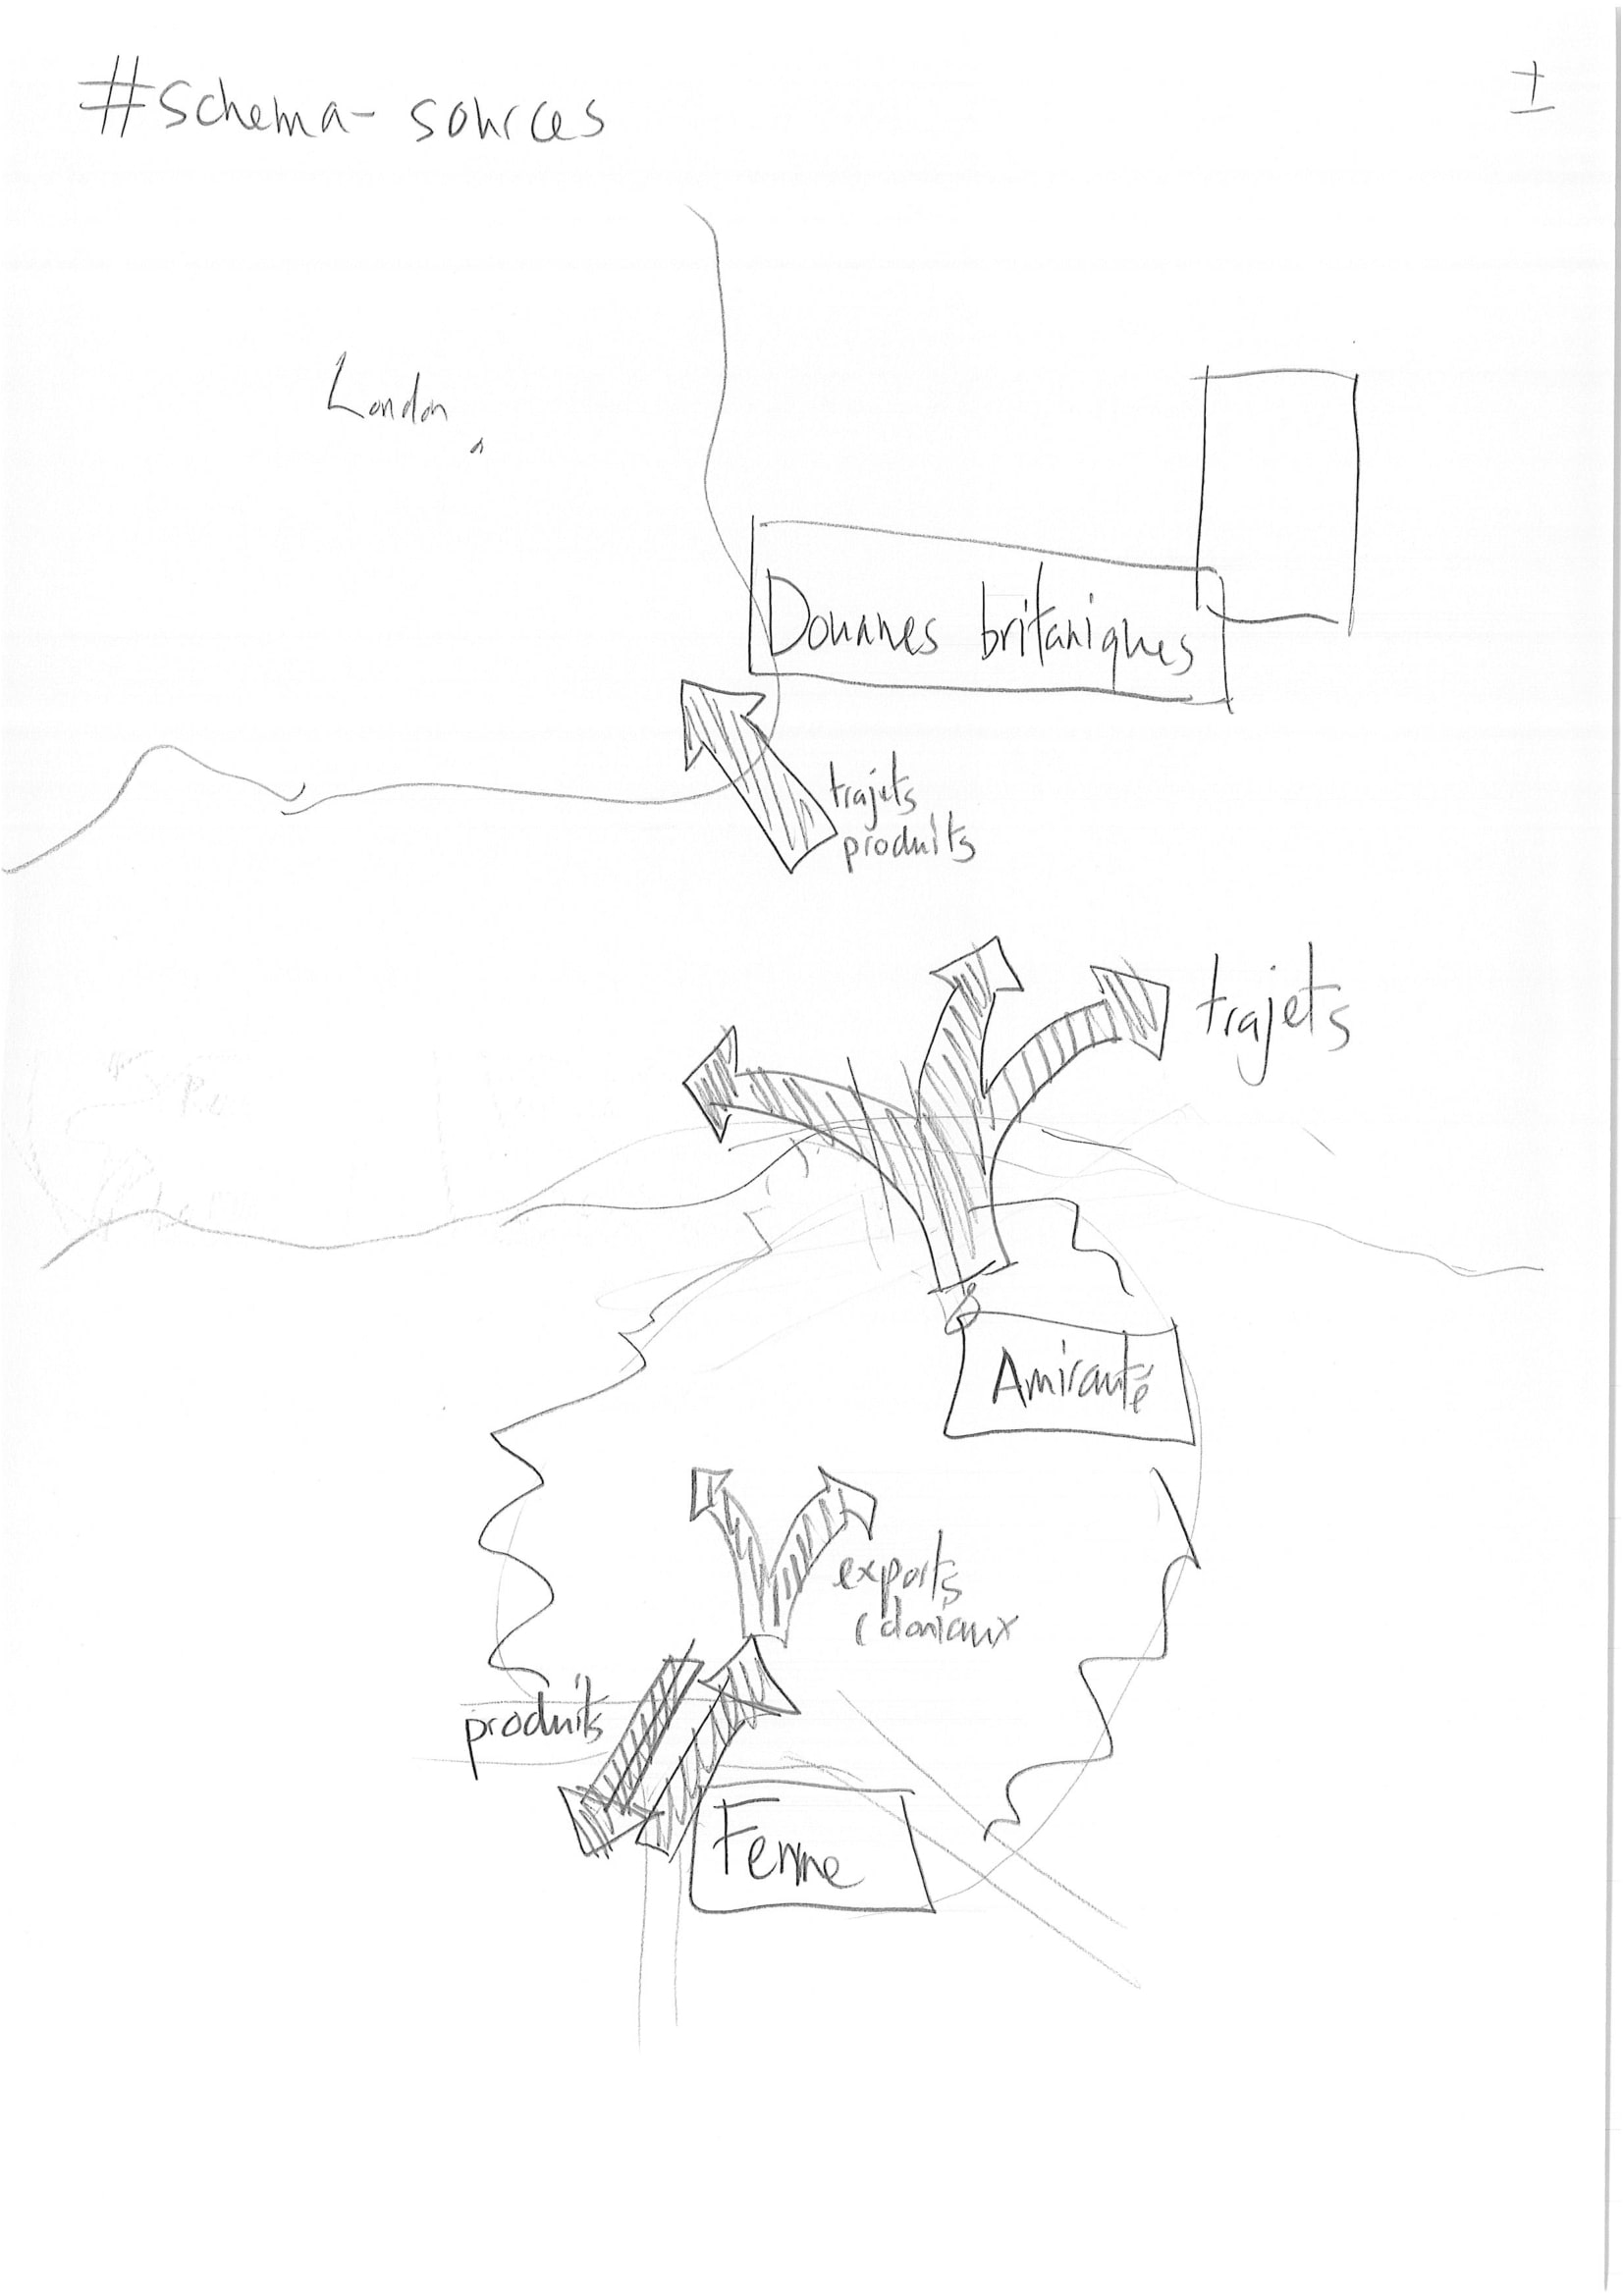 #schema-sources
1
London
Douanes britaniques
trajets
produits
trajets
Amirauté
exports
coloniaux
produits
Ferme